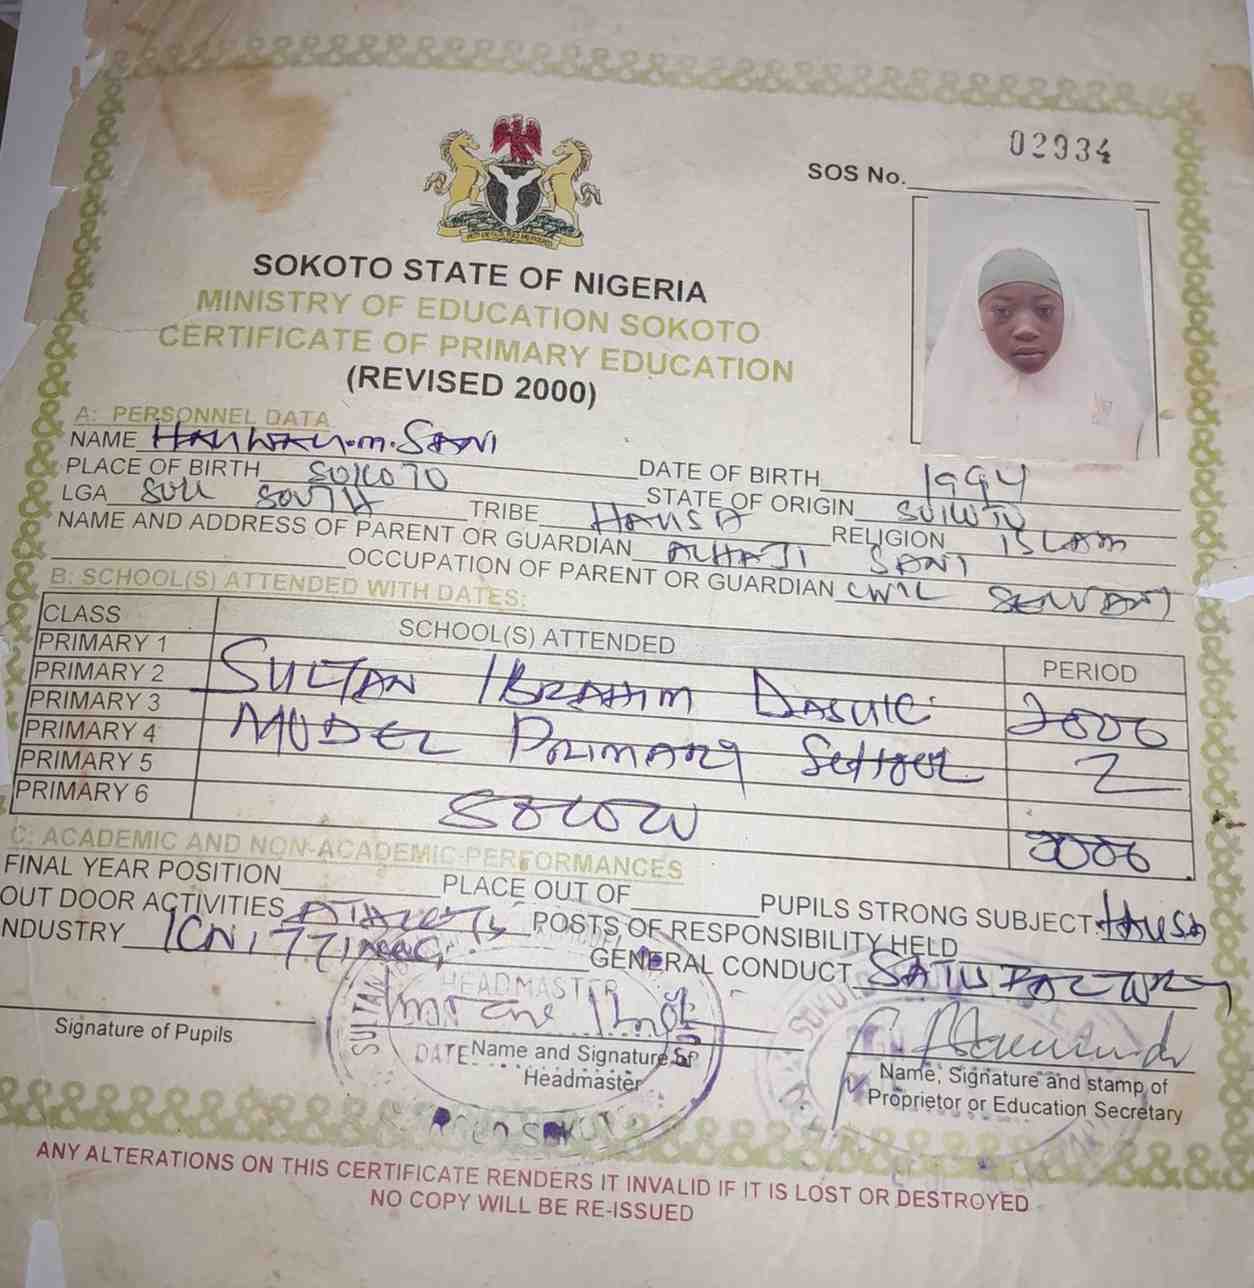 02934
SOS No.
SOKOTO STATE OF NIGERIA
MINISTRY OF EDUCATION SOKOTO
CERTIFICATE OF PRIMARY EDUCATION
(REVISED 2000)
A: PERSONNEL DATA
NAME M. SANI
PLACE OF BIRTH SOKOTO DATE OF BIRTH 1994
LGA SOUTH STATE OF ORIGIN SOKOTO
TRIBE HAUSA RELIGION ISLAM
NAME AND ADDRESS OF PARENT OR GUARDIAN ALHAJI SANI
OCCUPATION OF PARENT OR GUARDIAN CIVIL SERVANT
B: SCHOOL(S) ATTENDED WITH DATES:
CLASS SCHOOL(S) ATTENDED PERIOD
PRIMARY 1
PRIMARY 2 SULTAN IBRAHIM DASUKI 2000
PRIMARY 3
PRIMARY 4 MODEL PRIMARY SCHOOL
PRIMARY 5
PRIMARY 6 SOKOTO 2006
C: ACADEMIC AND NON-ACADEMIC PERFORMANCES
FINAL YEAR POSITION PLACE OUT OF PUPILS STRONG SUBJECT HAUSA
OUT DOOR ACTIVITIES POSTS OF RESPONSIBILITY HELD
NDUSTRY KNITTING GENERAL CONDUCT SATISFACTORY
HEADMASTER
SULTAN
DATE
Signature of Pupils
Name and Signature of
Headmaster
Name, Signature and stamp of
Proprietor or Education Secretary
ANY ALTERATIONS ON THIS CERTIFICATE RENDERS IT INVALID IF IT IS LOST OR DESTROYED
NO COPY WILL BE RE-ISSUED